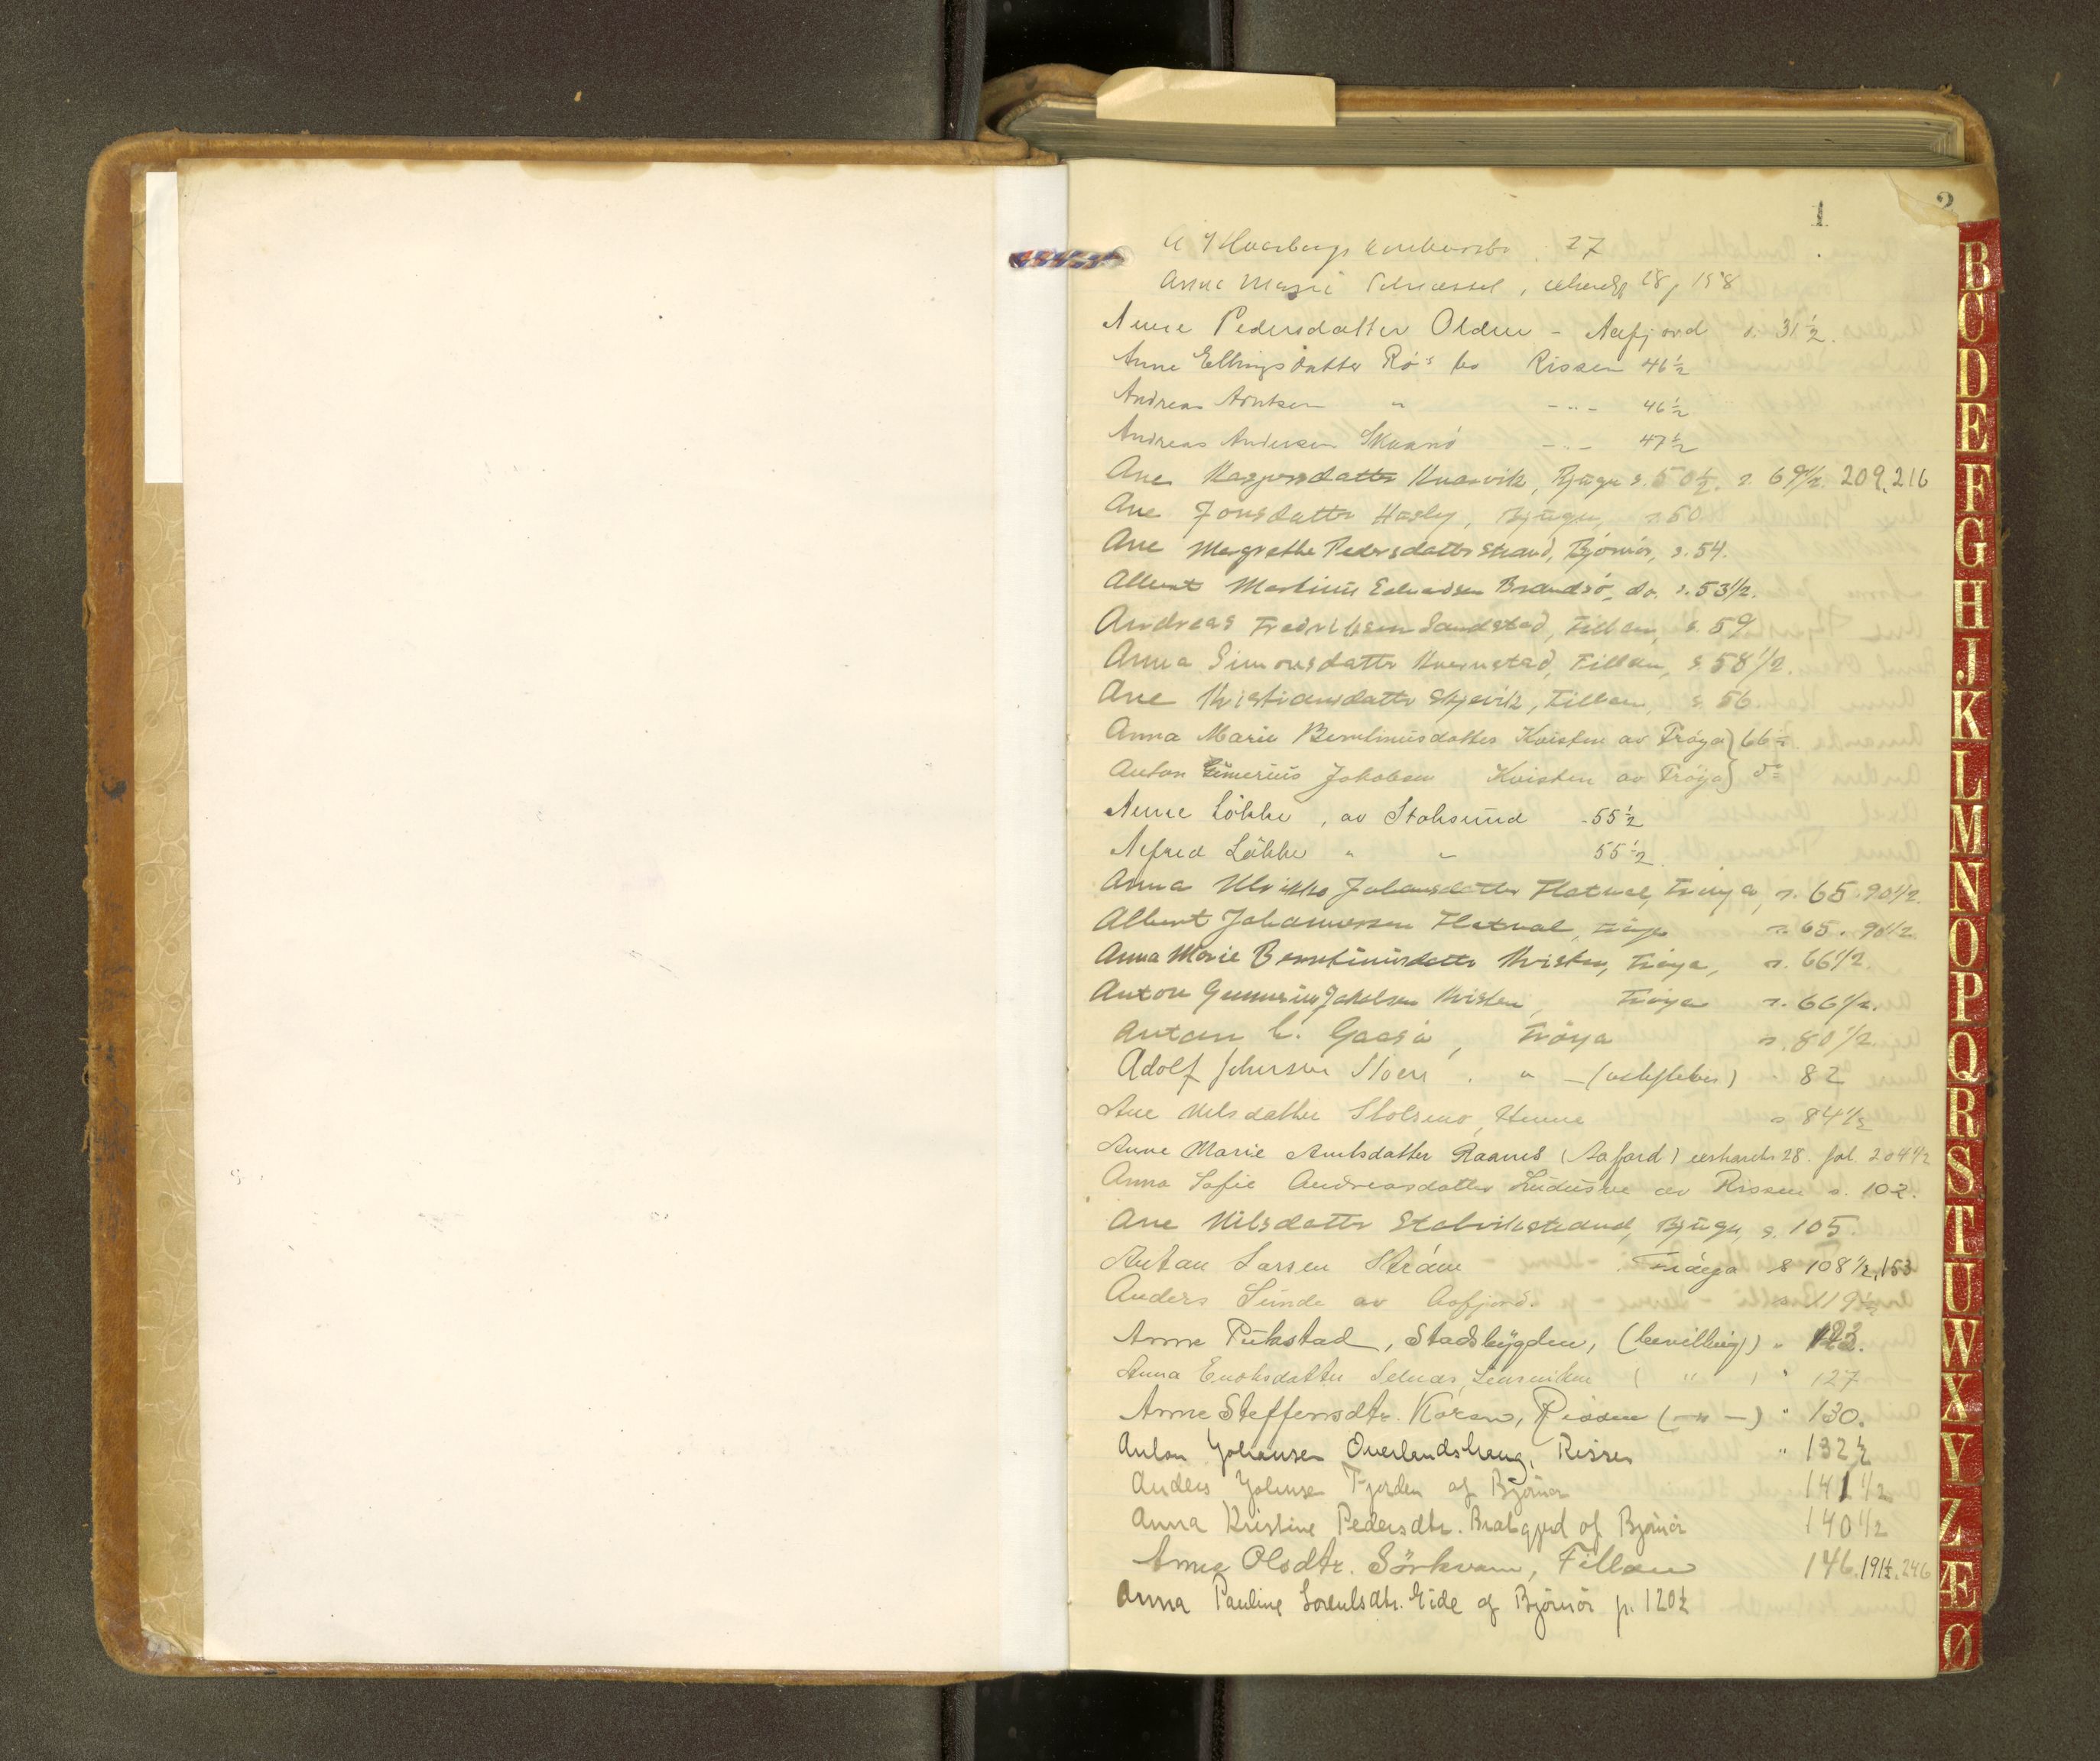 1
2
27
Anna Marie 28, 158
Anne Pedersdatter Olden - Aafjord s. 31½.
Anne Ellingsdatter Rø's bo Rissen 46½
Andreas Arntsen " -"- 46½
Andreas Andersen -"- 47½
Ane Kaspersdatter Kvasvik, Bjugn s. 50½. s. 69½. 209. 216
Ane Jonsdatter Hasly, Bjugn, s. 50.
Ane Magrethe Pedersdatter Strand, Bjørnør, s. 54.
Albert Martinus Edvardsen Brandsø, do. s. 53½.
Andreas Fredriksen Sandstad, Fillan, s. 59
Anna Simonsdatter Kvernstad, Fillan, s. 58½.
Ane Kristiansdatter Skjevik, Fillan, s. 56.
Anna Marie Berntinusdatter Kvisten av Frøya } 66½.
Anton Gunerius Jakobsen Kvisten av Frøya } do
Anne Løkke, av Stoksund - 55½
Alfred Løkke " " 55½.
Anna Ulrikke Johansdatter Flatval, Frøya, s. 65. 90½.
Albert Johannessen Flatval, Frøya s. 65. 90½.
Anna Marie Berntinusdatter Kvisten, Frøya, s. 66½.
Anton Gunnerius Jakobsen Kvisten, Frøya s. 66½.
Anton Gaasø, Frøya s. 80½.
Adolf Johnsen " - 82
Ane Nilsdatter Stolsmo, Hevne s. 84½
Anne Marie Arntsdatter Raanes (Aafjord) 28. fol. 204½
Anna Sofie Andreasdatter av Rissen s. 102.
Ane Nilsdatter Stalvikstrand, Bjugn, s. 105.
Anton Larsen Strøm Frøya s 108½, 153
Anders Sunde av Aafjord. s 119½
Anne Pukstad, Stadsbygden, (bevilling) " 123.
Anna Enoksdatter Selnes, Lensviken ( " ) " 127
Anne Steffensdtr. Rissen (-"-) " 130.
Anton Johansen Overlandshaug, Rissen " 132½
Anders Johnsen Fjorden af Bjørnør 141½
Anna Kristine Pedersdtr. Bratgjerd af Bjørnør 140½
Anne Olsdtr. Sørkvam, Fillan 146. 191½. 246
Anna Pauline Lorentsdtr. Eide af Bjørnør p. 120½
B
C
D
E
F
G
H
J
K
L
M
N
O
P
Q
R
S
T
U
W
X
Y
Z
Æ
Ø